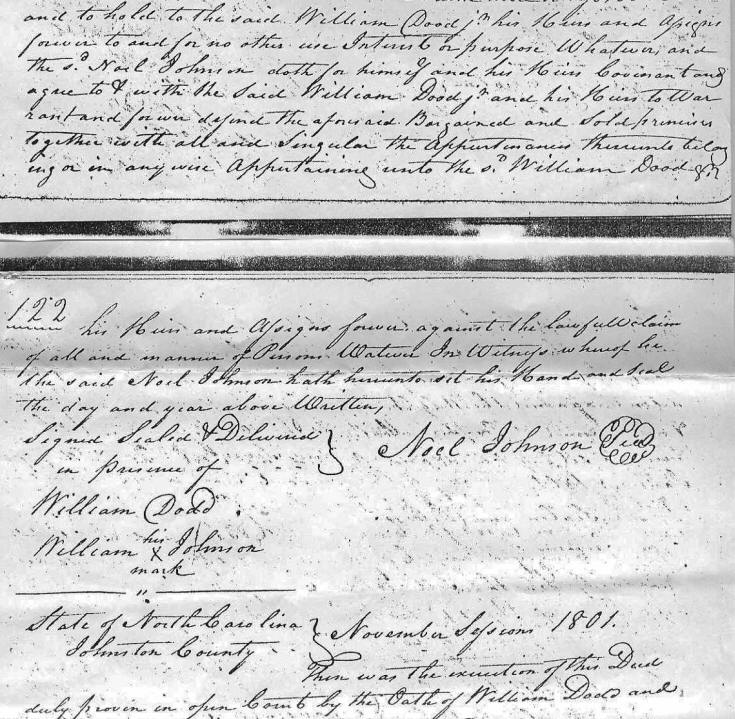 and to hold to the said William Dodd jr. his Heirs and Assigns
forever to and for no other use Interest or purpose Whatever, and
the sd. Noel Johnson doth for himself and his Heirs Covenant and
agree to & with the said William Dodd jr. and his Heirs to War
rant and forever defend the aforesaid Bargained and Sold premises
together with all and Singular the Appurtinances thereunto belong
ing or in anywise Appertaining unto the sd. William Dodd jr.
122 his Heirs and Assigns forever against the lawfull claim
of all and manner of Persons Watever In Witness whereof he
the said Noel Johnson hath hereunto set his Hand and Seal
the day and year above Written,
Signed Sealed & Delivered } Noel Johnson Seal
in presence of
William Dodd
William his X mark Johnson
State of North Carolina } November Sessions 1801.
Johnston County
Then was the execution of this Deed
duly proven in open Court by the Oath of William Dodd and